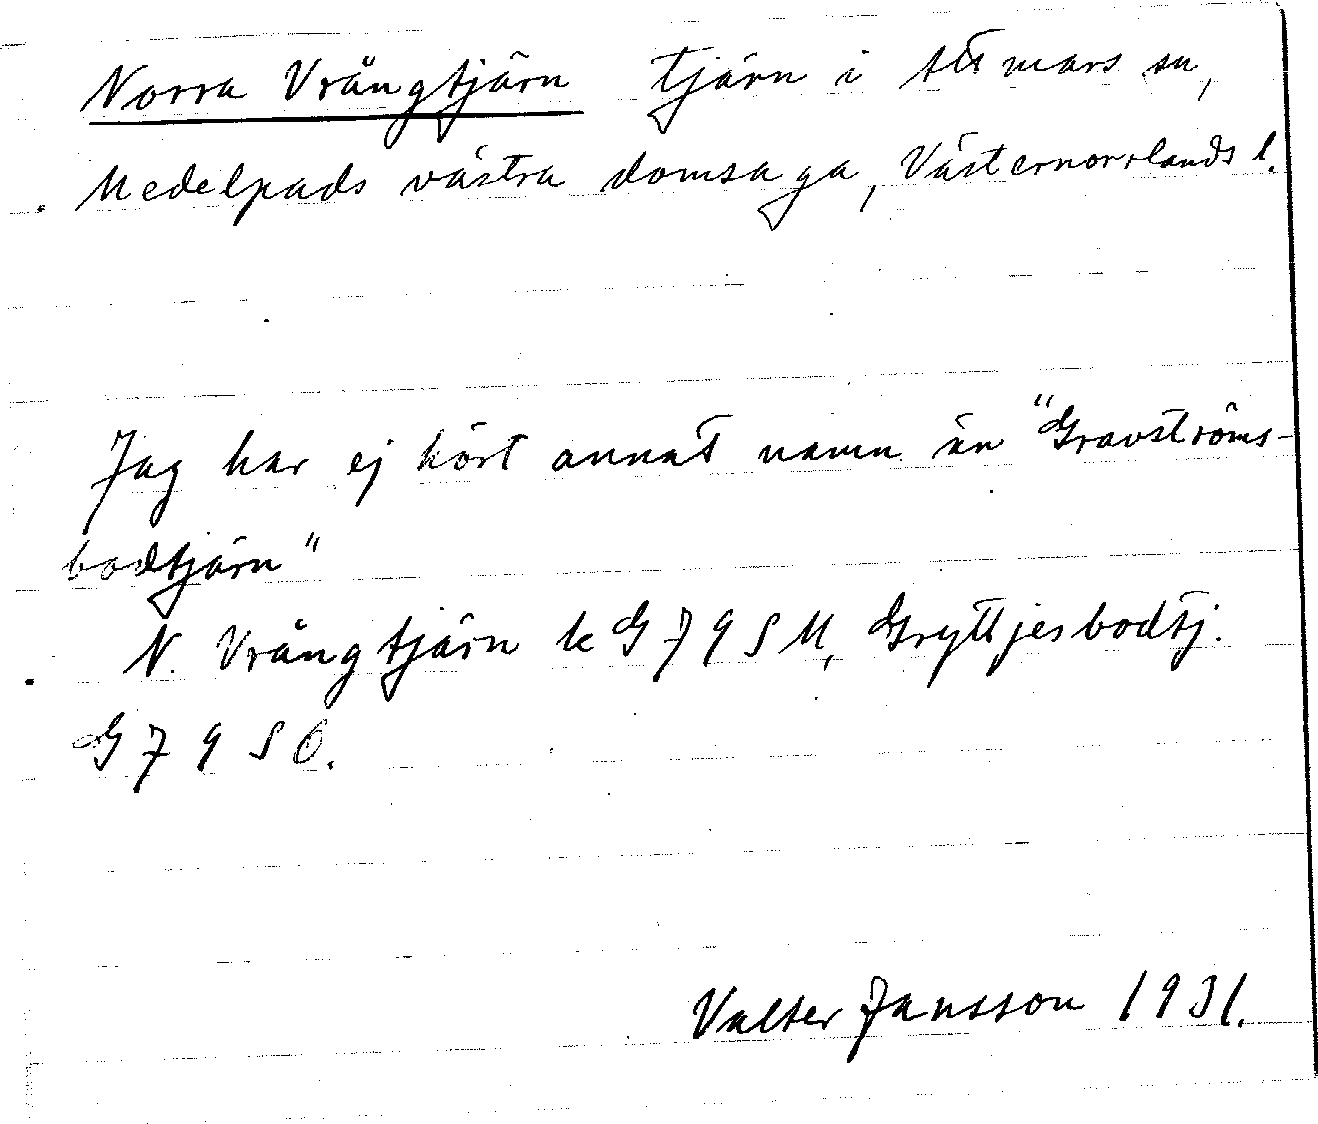 Norra Vrångtjärn tjärn i Attmars sn,
Medelpads västra domsaga, Västernorrlands l.
Jag har ej hört annat namn än "Gravströms-
bodtjärn"
N. Vrångtjärn k G 79 S M, Gryttjesbodtj.
G 79 S Ö.
Valter Jansson 1931.